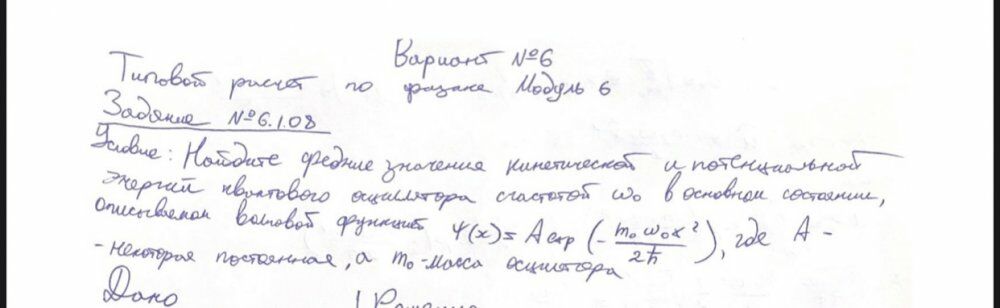 Вариант №6
Типовой расчёт по физике Модуль 6
Задание №6.1.08
Условие: Найдите средние значения кинетической и потенциальной
энергий квантового осциллятора с частотой ω₀ в основном состоянии,
описываемом волновой функцией ψ(x) = A exp (- m₀ω₀x² / 2ħ), где A -
- некоторая постоянная, а m₀ - масса осциллятора
Дано Решение